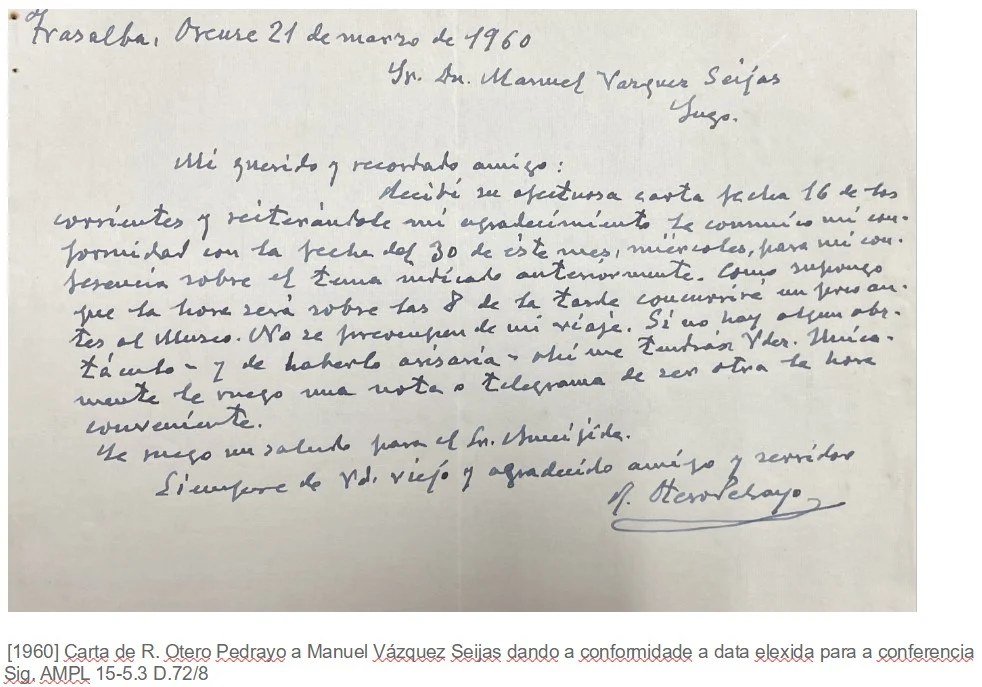 Trasalba, Orense 21 de marzo de 1960
Sr. Dn. Manuel Vazquez Seijas
Lugo.
Mi querido y recordado amigo:
Recibí su afectuosa carta fecha 16 de los
corrientes y reiterándole mi agradecimiento le comunico mi con-
formidad con la fecha del 30 de éste mes, miércoles, para mi con-
ferencia sobre el tema indicado anteriormente. Como supongo
que la hora será sobre las 8 de la tarde concurriré un poco an-
tes al Museo. No se preocupen de mi viaje. Si no hay algun obs-
táculo - y de haberlo avisaría - ahí me tendrán Vdes. Única-
mente le ruego una nota o telegrama de ser otra la hora
conveniente.
Le ruego un saludo para el Sr.
Siempre de Vd. viejo y agradecido amigo y servidor
R. Otero Pedrayo
[1960] Carta de R. Otero Pedrayo a Manuel Vázquez Seijas dando a conformidade a data elexida para a conferencia
Sig. AMPL 15-5.3 D.72/8